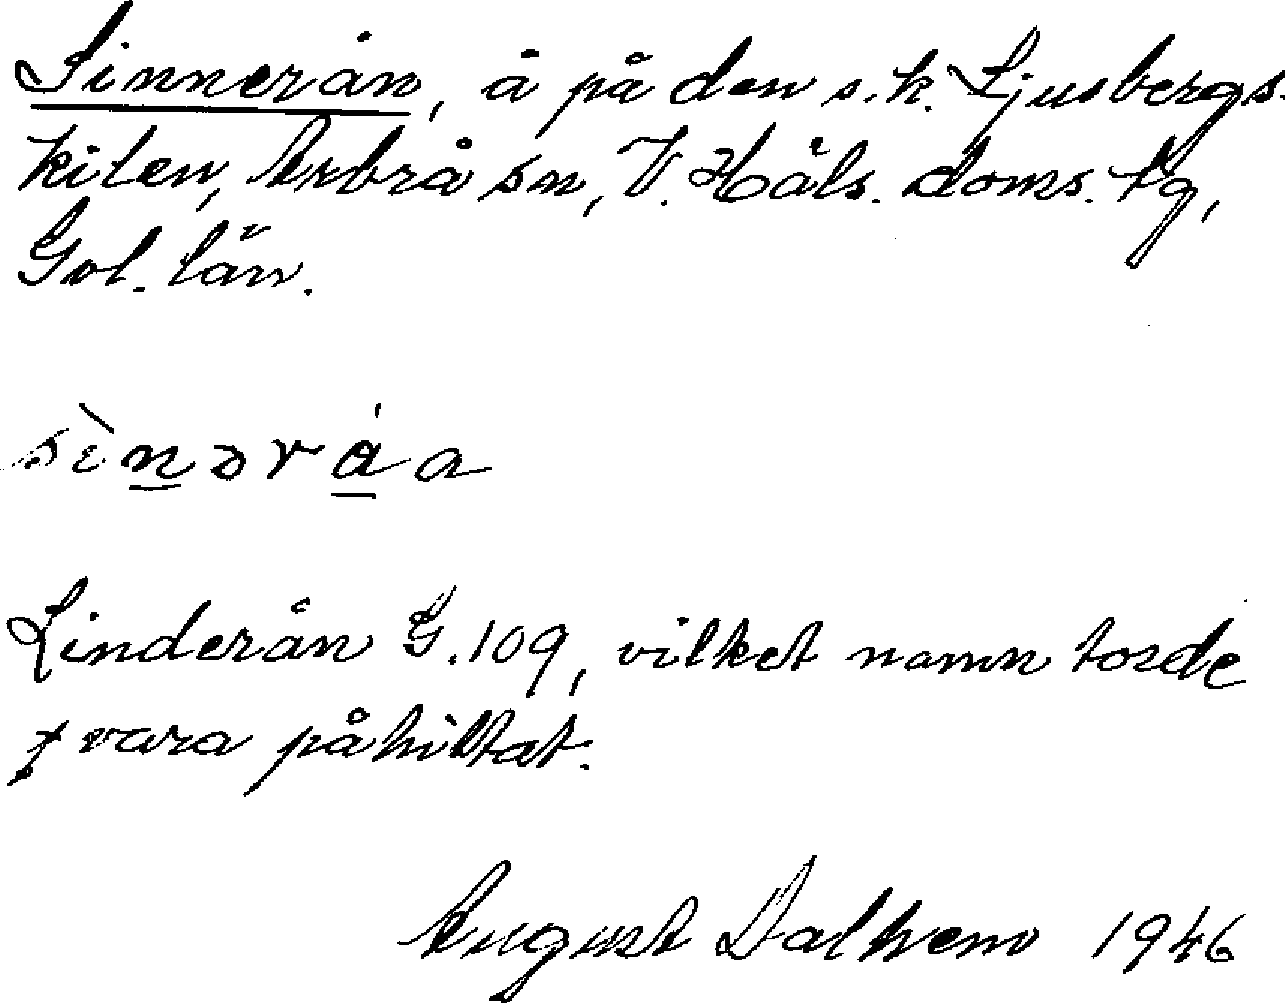 Sinnerån, å på den s.k. Ljusbergs-
kilen, Arbrå sn, V. Häls. doms. tg,
Gvl. län.
sìnəráa
Linderån G. 109, vilket namn torde
vara påhittat.
August Dalhem 1946